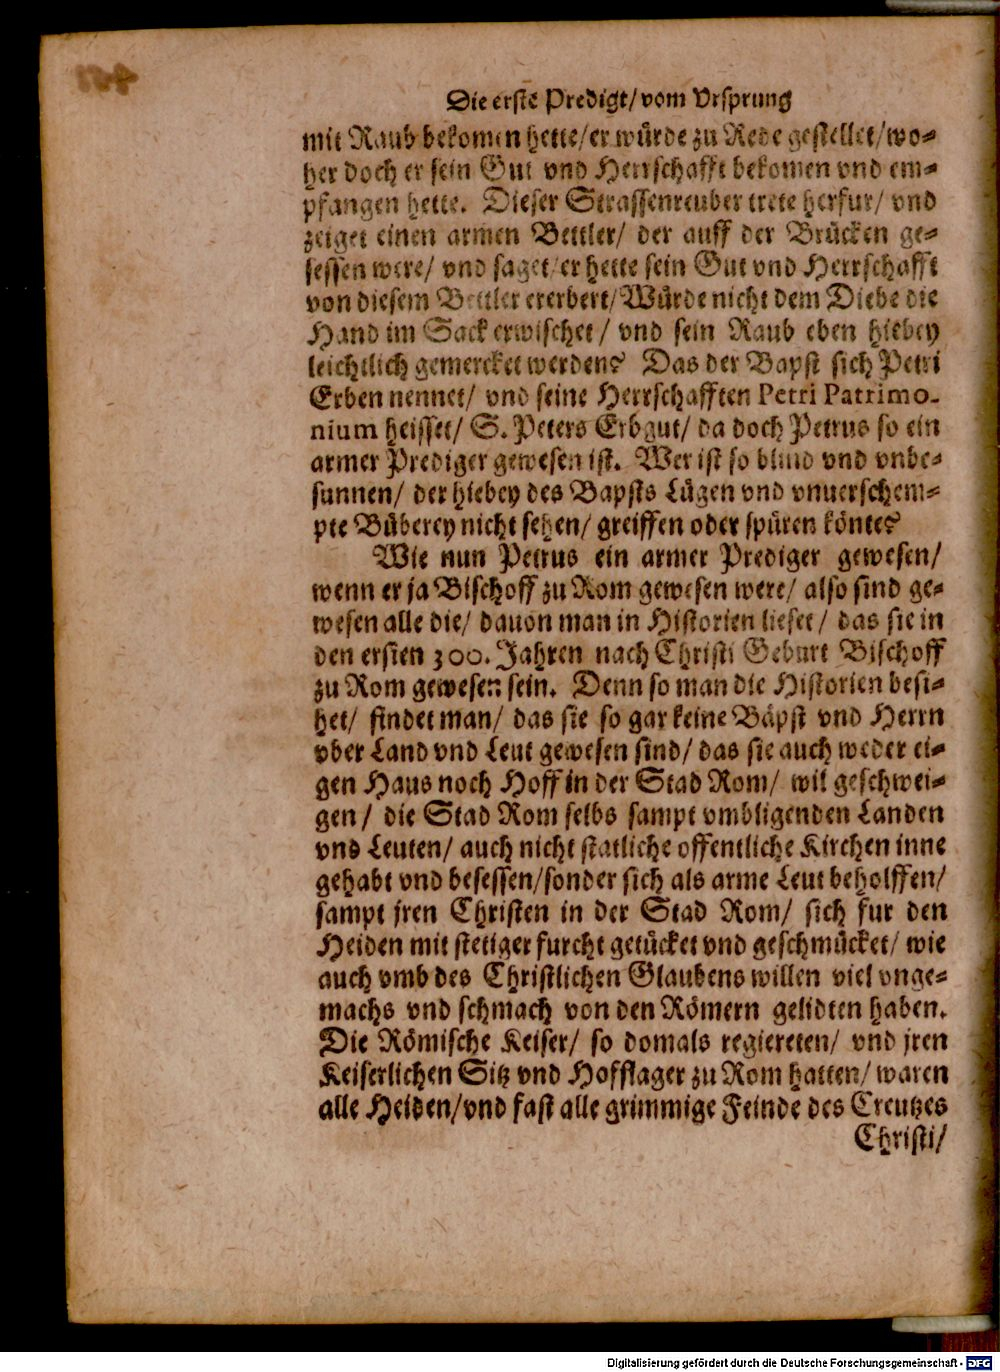 Die erste Predigt/ vom Vrsprung
mit Raub bekomen hette/ er würde zu Rede gestellet/ wo-
her doch er sein Gut vnd Herrschafft bekomen vnd em-
pfangen hette. Dieser Strassenreuber trete herfur/ vnd
zeiget einen armen Bettler/ der auff der Brücken ge-
sessen were/ vnd saget/ er hette sein Gut vnd Herrschafft
von diesem Bettler ererbert/ Würde nicht dem Diebe die
Hand im Sack erwischet/ vnd sein Raub eben hiebey
leichtlich gemercket werden? Das der Bapst sich Petri
Erben nennet/ vnd seine Herrschafften Petri Patrimo-
nium heisset/ S. Peters Erbgut/ da doch Petrus so ein
armer Prediger gewesen ist. Wer ist so blind vnd vnbe-
sunnen/ der hiebey des Bapsts Lügen vnd vnuerschem-
pte Büberey nicht sehen/ greiffen oder spüren könte?
Wie nun Petrus ein armer Prediger gewesen/
wenn er ja Bischoff zu Rom gewesen were/ also sind ge-
wesen alle die/ dauon man in Historien lieset/ das sie in
den ersten 300. Jahren nach Christi Geburt Bischoff
zu Rom gewesen sein. Denn so man die Historien besi-
het/ findet man/ das sie so gar keine Bäpst vnd Herrn
vber Land vnd Leut gewesen sind/ das sie auch weder ei-
gen Haus noch Hoff in der Stad Rom/ wil geschwei-
gen/ die Stad Rom selbs sampt vmbligenden Landen
vnd Leuten/ auch nicht statliche offentliche Kirchen inne
gehabt vnd besessen/ sonder sich als arme Leut beholffen/
sampt jren Christen in der Stad Rom/ sich fur den
Heiden mit stetiger furcht getücket vnd geschmücket/ wie
auch vmb des Christlichen Glaubens willen viel vnge-
machs vnd schmach von den Römern gelidten haben.
Die Römische Keiser/ so domals regiereten/ vnd jren
Keiserlichen Sitz vnd Hofflager zu Rom hatten/ waren
alle Heiden/ vnd fast alle grimmige Feinde des Creutzes
Christi/
Digitalisierung gefördert durch die Deutsche Forschungsgemeinschaft - DFG